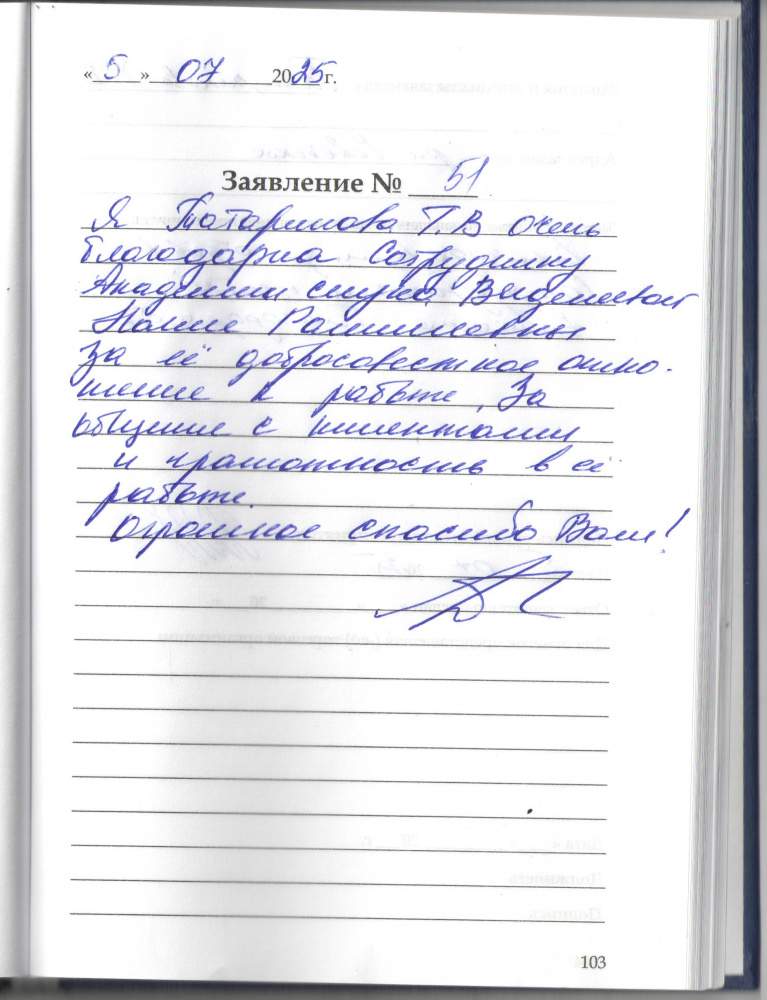 « 5 » 07 2025 г.
Заявление № 51
Я Татаринова Т.В очень
благодарна сотруднику
Академии слуха
Рашитовны
за её добросовестное отно-
шение к работе, За
общение с клиентами
и грамотность в её
работе.
Огромное спасибо Вам!
103